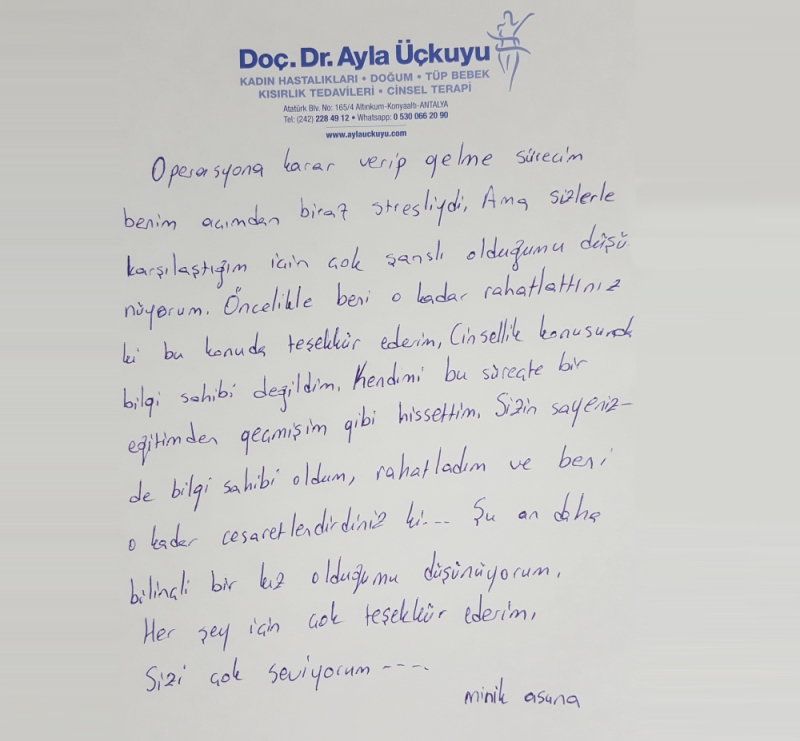 Doç. Dr. Ayla Üçkuyu
KADIN HASTALIKLARI • DOĞUM • TÜP BEBEK
KISIRLIK TEDAVİLERİ • CİNSEL TERAPİ
Atatürk Blv. No: 165/4 Altınkum-Konyaaltı-ANTALYA
Tel: (242) 228 49 12 • Whatsapp: 0 530 066 20 90
www.aylauckuyu.com
Operasyona karar verip gelme sürecim
benim açımdan biraz stresliydi. Ama sizlerle
karşılaştığım için çok şanslı olduğumu düşü
nüyorum. Öncelikle beni o kadar rahatlattınız
ki bu konuda teşekkür ederim. Cinsellik konusunda
bilgi sahibi değildim. Kendimi bu süreçte bir
eğitimden geçmişim gibi hissettim. Sizin sayeniz-
de bilgi sahibi oldum, rahatladım ve beni
o kadar cesaretlendirdiniz ki... Şu an daha
bilinçli bir kız olduğumu düşünüyorum.
Her şey için çok teşekkür ederim.
Sizi çok seviyorum ----.
minik asuna